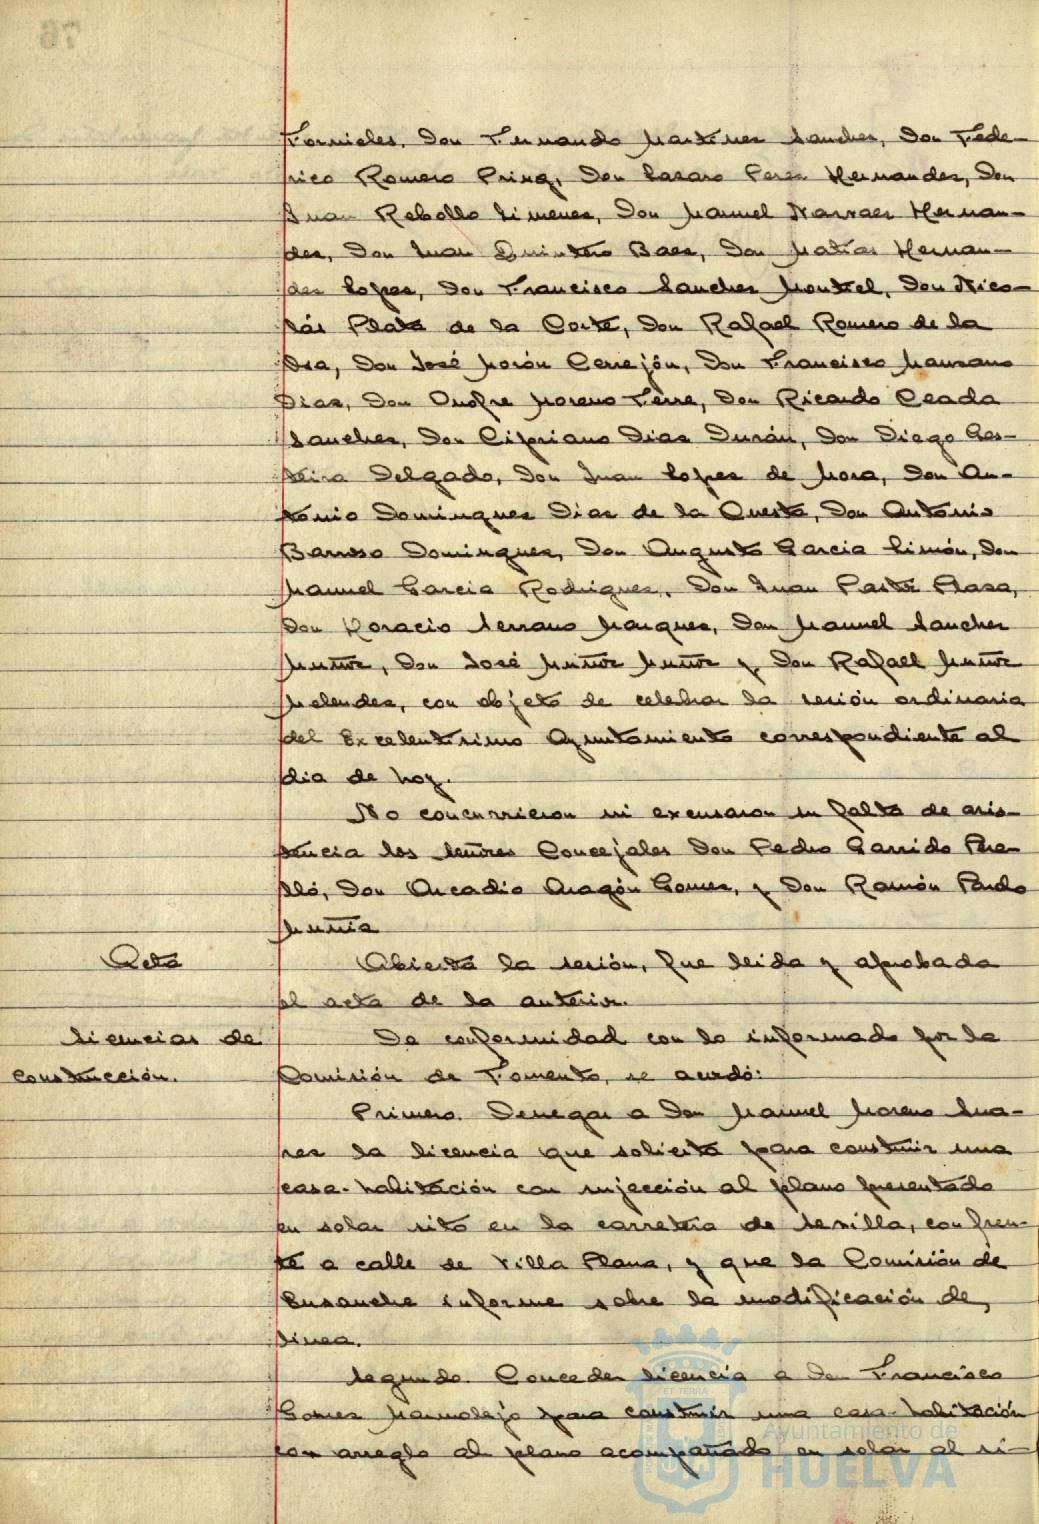 Fornieles, Don Fernando Martinez Sanchez, Don Fede-
rico Romero Prieg, Don Lazaro Perez Hernandez, Don
Juan Rebollo Jimenez, Don Manuel Narvaez Hernan-
dez, Don Juan Quintero Baez, Don Matias Hernan-
dez Lopez, Don Francisco Sanchez Montiel, Don Nico-
lás Plata de la Corte, Don Rafael Romero de la
Osa, Don José Morón Cerrejón, Don Francisco Manzano
Diaz, Don Onofre Moreno Terre, Don Ricardo Ceada
Sanchez, Don Cipriano Diaz Durán, Don Diego Gar-
Delgado, Don Juan Lopez de Mora, Don An-
tonio Dominguez Diaz de la Cuesta, Don Antonio
Barroso Dominguez, Don Augusto Garcia Simón, Don
Manuel Garcia Rodriguez, Don Juan Plaza,
Don Horacio Serrano Marquez, Don Manuel Sanchez
Muñoz, Don José Muñoz Muñoz y Don Rafael Muñoz
Melendez, con objeto de celebrar la sesión ordinaria
del Excelentísimo Ayuntamiento correspondiente al
dia de hoy.
No concurrieron ni excusaron su falta de asis-
tencia los señores Concejales Don Pedro Garrido Pere-
lló, Don Arcadio Aragón Gomez, y Don Ramón Pardo
Acta
Abierta la sesión, fue leida y aprobada
el acta de la anterior.
Licencias de
construcción.
De conformidad con lo informado por la
Comisión de Fomento, se acordó:
Primero. Denegar a Don Manuel Moreno Sua-
rez la licencia que solicita para construir una
casa-habitación con sujección al plano presentado
en solar sito en la carretera de Sevilla, con fren-
te a calle de Villa Plana, y que la Comisión de
Ensanche informe sobre la modificación de
linea.
Segundo. Conceder licencia a Don Francisco
Gomez Marmolejo para construir una casa-habitación
con arreglo al plano acompañado en solar al si-
Ayuntamiento de
HUELVA